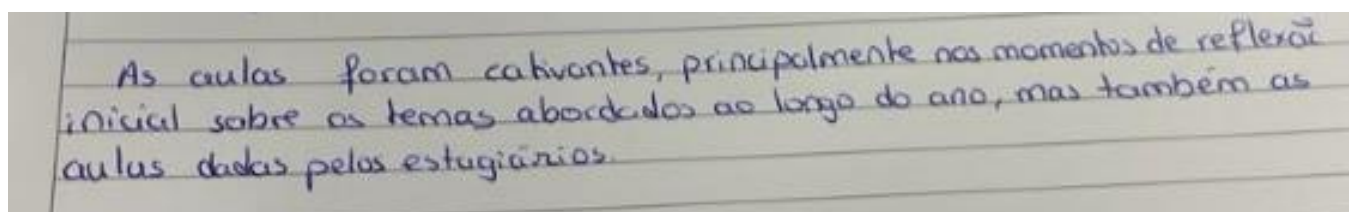 As aulas foram cativantes, principalmente nos momentos de reflexão
inicial sobre os temas abordados ao longo do ano, mas também as
aulas dadas pelos estagiários.